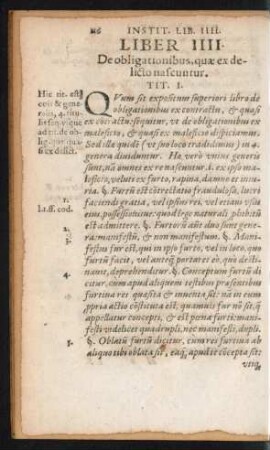 116 INSTIT. LIB. IIII.
LIBER IIII.
De obligationibus, quæ ex de-
licto nascuntur.
TIT. I.
Hic tit. est
ad it. de ob
ligationi-
1.
QVum sit expositum superiori libro de
obligationibus ex contractu, & quasi
ex contractu: sequitur, vt de obligationibus ex
maleficio, & quasi ex maleficio dispiciamus.
Sed illæ quidẽ (vt suo loco tradidimus) in 4.
genera diuiduntur. Hæ verò vnius generis
sunt, nã omnes ex re nascuntur. i. ex ipso ma-
leficio, veluti ex furto, rapina, damno, iniu-
ria. §. Furtũ est cõtrectatio fraudulosa, lucri
faciendi gratia, vel ipsius rei, vel etiam vsus
eius, possessionisue: quod lege naturali prohibitũ
est admittere. §. Furtorũ autẽ duo sunt gene-
ra: manifestũ, & non manifestum. §. Mani-
festus fur est, qui in ipso furto, vel in loco, quo
furtũ facit, vel anteq̃ portaret eò, quò desti-
nauit, deprehenditur. §. Conceptum furtũ di-
citur, cum apud aliquem testibus præsentibus
furtiua res quæsita & inuenta sit: nã in eum
propria actio cõstituta est, quamuis fur nõ sit, q̃
appellatur concepti, & est pœna furti: mani-
festi videlicet quadrupli, nec manifesti, dupli.
§. Oblatũ furtũ dicitur, cum res furtiua ab
aliquo tibi oblata sit, eaq; apud te cõcepta sit:
2.
3.
4.
5.